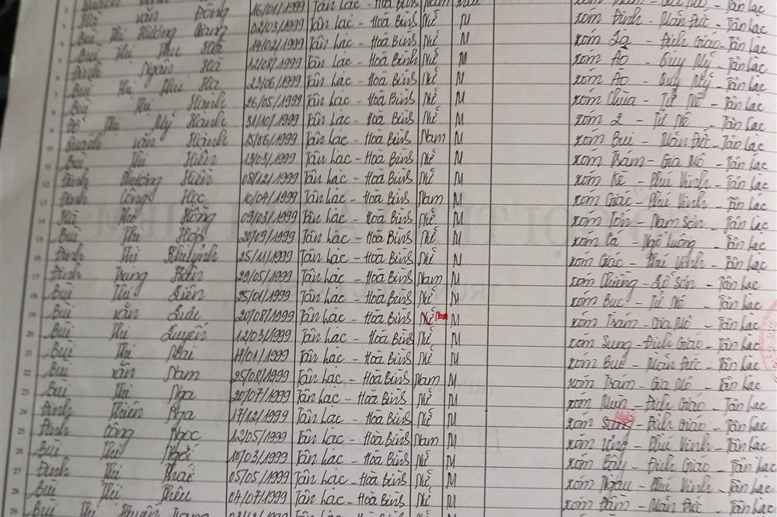 Hà Văn Đông 16/01/1999 Tân Lạc - Hoà Bình Nam
Bùi Thị Hương Giang 02/03/1999 Tân Lạc - Hoà Bình Nữ M xóm Định - Mãn Đức - Tân Lạc
Bùi Thị Thu Hà 19/02/1999 Tân Lạc - Hoà Bình Nữ M Định Giáo - Tân Lạc
Đinh Ngân Hà 12/08/1999 Tân Lạc - Hoà Bình Nữ M xóm Ào - Quy Mỹ - Tân Lạc
Bùi Thị Thu Hà 23/06/1999 Tân Lạc - Hoà Bình Nữ M xóm Ào - Quy Mỹ - Tân Lạc
Bùi Thị Hạnh 26/05/1999 Tân Lạc - Hoà Bình Nữ M xóm Chùa - Tử Nê - Tân Lạc
Thị Mỹ Hạnh 31/10/1999 Tân Lạc - Hoà Bình Nữ M xóm 2 - Tử Nê - Tân Lạc
Quách Văn Hành 15/06/1999 Tân Lạc - Hoà Bình Nam M xóm Bui - Mãn Đức - Tân Lạc
Bùi Thị Hiền 13/03/1999 Tân Lạc - Hoà Bình Nữ M xóm Trám - Gia Mô - Tân Lạc
Đinh Phương Hiền 08/12/1999 Tân Lạc - Hoà Bình Nữ M xóm Kè - Phú Vinh - Tân Lạc
Đinh Công 10/04/1999 Tân Lạc - Hoà Bình Nam M xóm Giác - Phú Vinh - Tân Lạc
Hà Thị Hồng 09/03/1999 Tân Lạc - Hoà Bình Nữ M xóm Tớn - Nam Sơn - Tân Lạc
Bùi Thị Hợp 20/09/1999 Tân Lạc - Hoà Bình Nữ M xóm Cá - Ngổ Luông - Tân Lạc
Đinh Thị Khuỳnh 25/11/1999 Tân Lạc - Hoà Bình Nữ M xóm Giác - Phú Vinh - Tân Lạc
Đinh Trung Kiên 29/05/1999 Tân Lạc - Hoà Bình Nam M xóm Chiềng - Lỗ Sơn - Tân Lạc
Bùi Thị Liên 25/01/1999 Tân Lạc - Hoà Bình Nữ M xóm Bục - Tử Nê - Tân Lạc
Bùi Văn 20/08/1999 Tân Lạc - Hoà Bình Nữ Nam M xóm Trám - Gia Mô - Tân Lạc
Bùi Thị Luyến 12/03/1999 Tân Lạc - Hoà Bình Nữ M xóm Sung - Định Giáo - Tân Lạc
Bùi Thị Mai 17/01/1999 Tân Lạc - Hoà Bình Nữ M xóm Bui - Mãn Đức - Tân Lạc
Bùi Văn Nam 25/08/1999 Tân Lạc - Hoà Bình Nam M xóm Trám - Gia Mô - Tân Lạc
Bùi Thị Nga 20/07/1999 Tân Lạc - Hoà Bình Nữ M xóm Mùn - Định Giáo - Tân Lạc
Đinh Thiên Nga 17/12/1999 Tân Lạc - Hoà Bình Nữ M xóm Định Giáo - Tân Lạc
Đinh Công Ngọc 12/05/1999 Tân Lạc - Hoà Bình Nam M xóm Phú Vinh - Tân Lạc
Bùi Thị 10/03/1999 Tân Lạc - Hoà Bình Nữ M xóm Định Giáo - Tân Lạc
Đinh Thị Thái 05/05/1999 Tân Lạc - Hoà Bình Nữ M xóm Ngau - Phú Vinh - Tân Lạc
Bùi Thị Thêu 04/07/1999 Tân Lạc - Hoà Bình Nữ M xóm Đầm - Mãn Đức - Tân Lạc